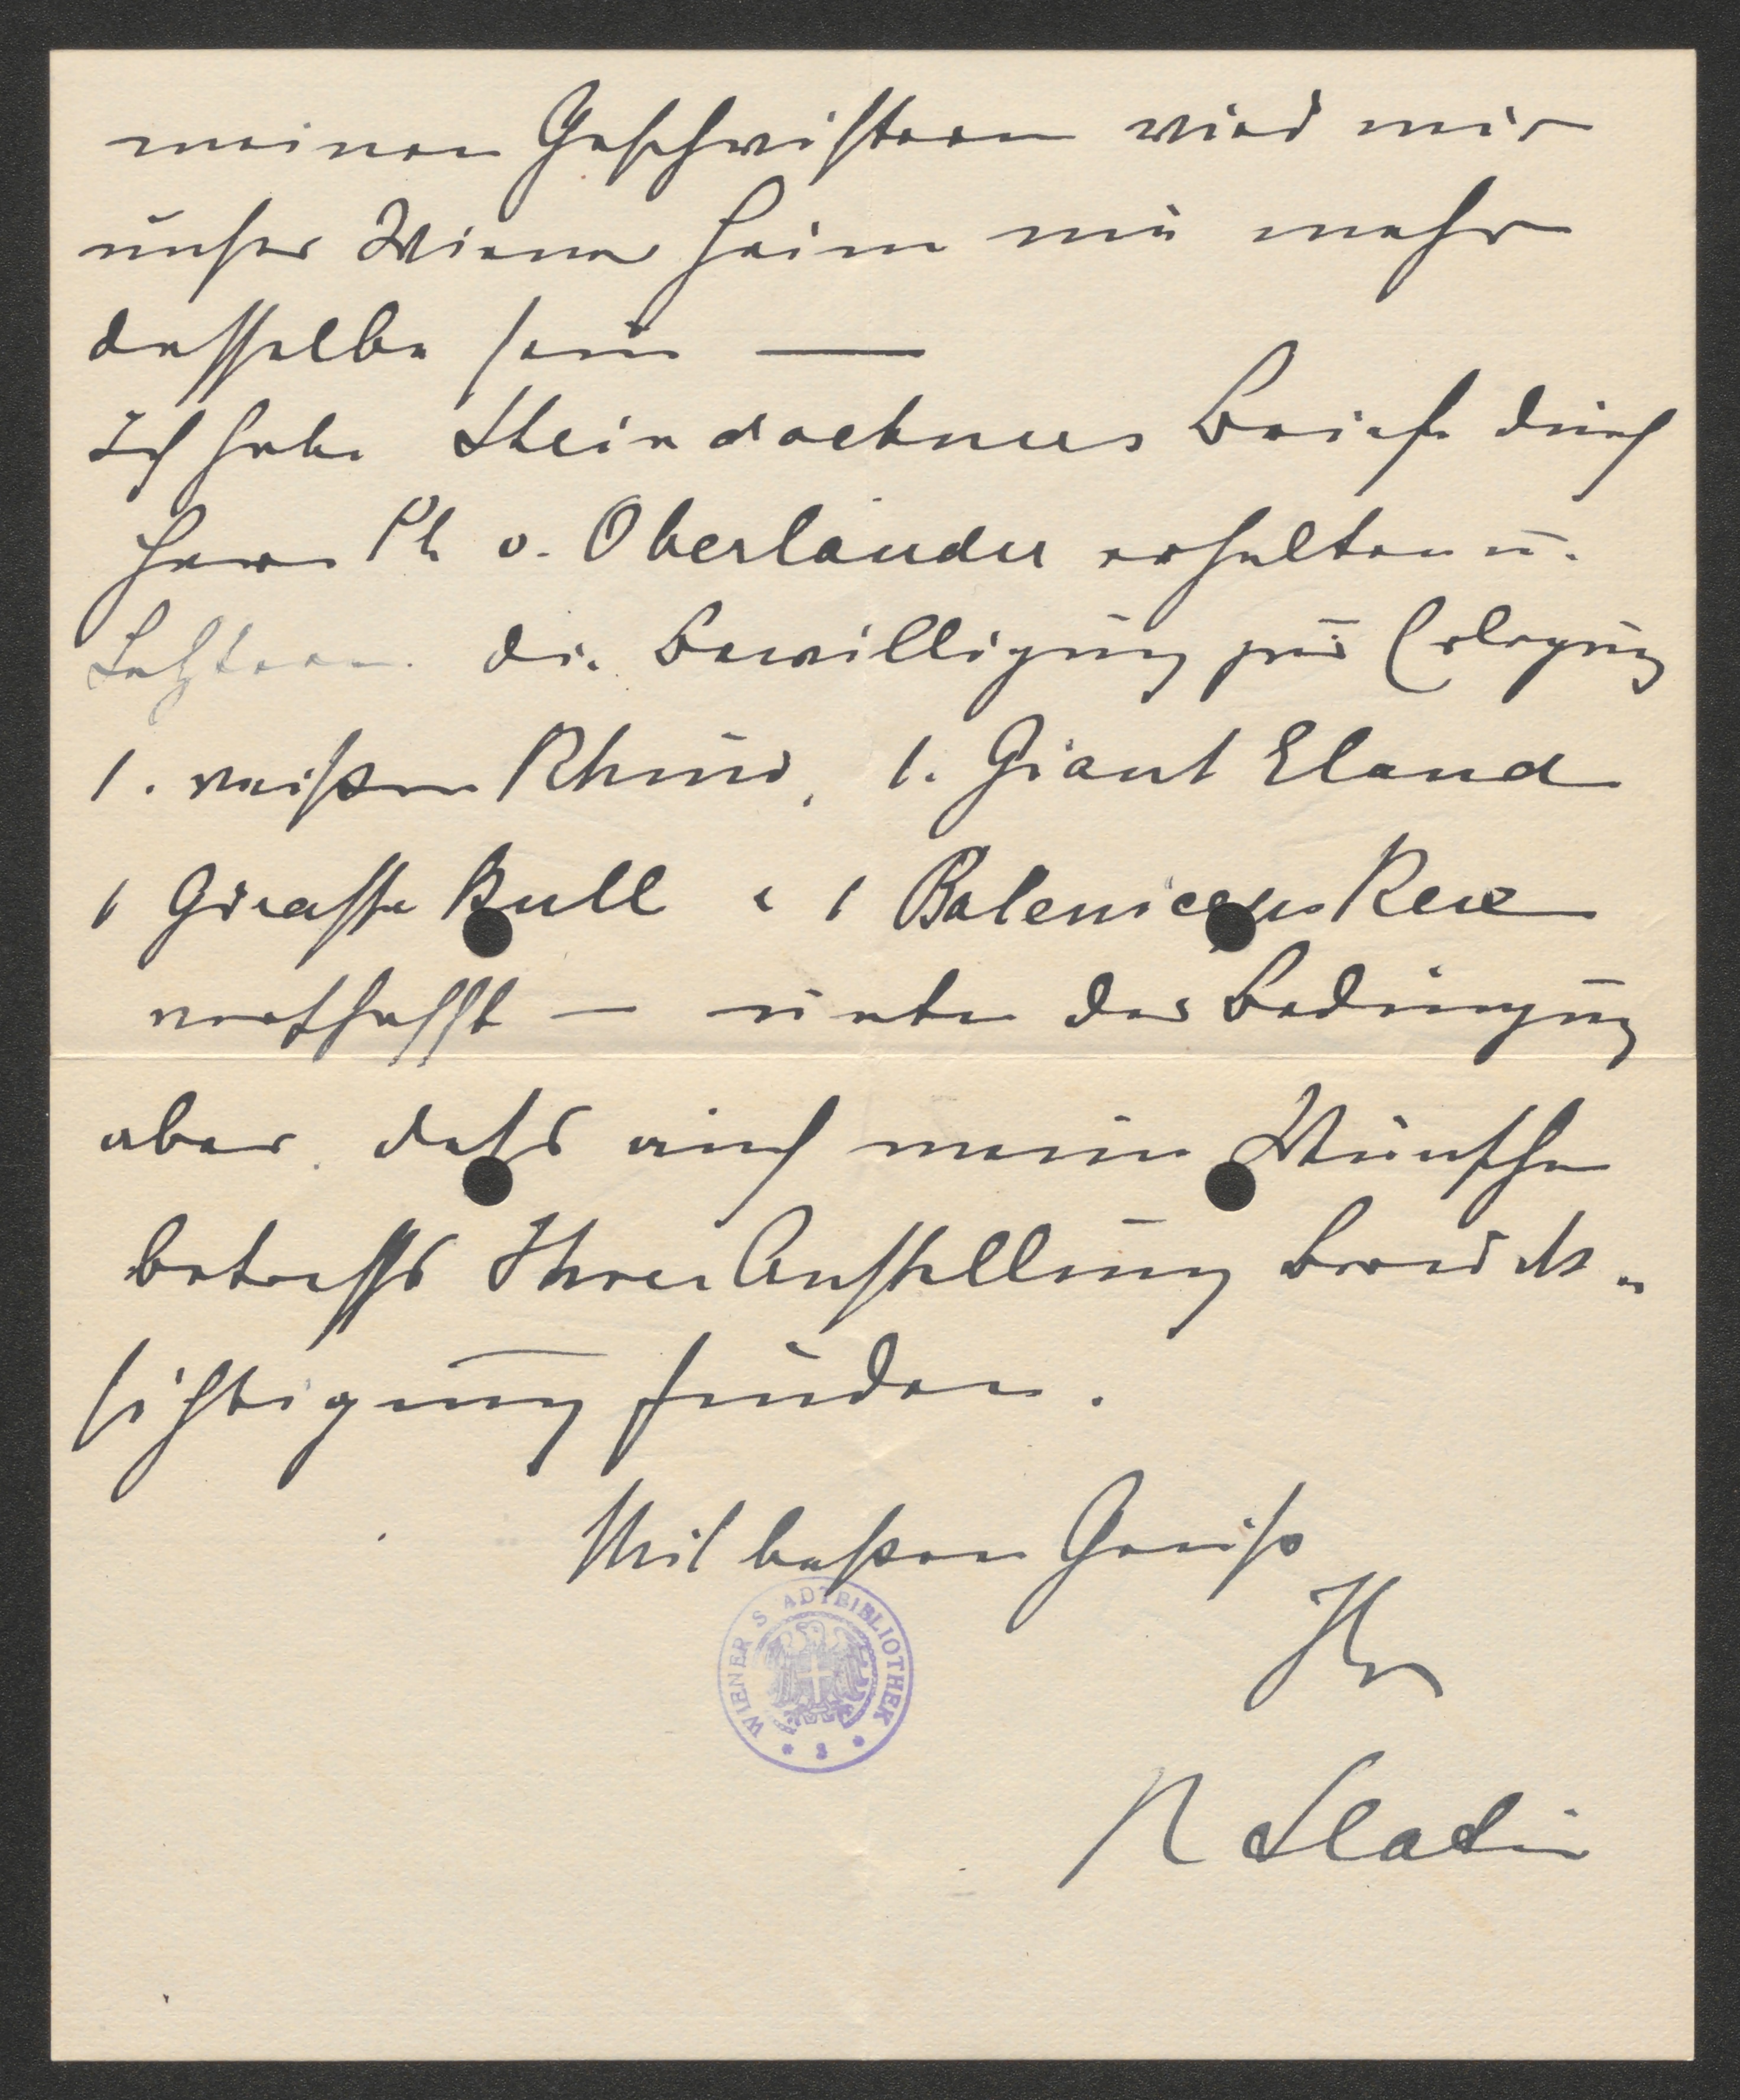 meinen Geschwistern wird mir
unser Wiener Heim nie mehr
dasselbe sein —
Ich habe Steindachners Brief durch
Herrn Ph v. Oberländer erhalten u.
Letzteren die Bewilligung zur Erlegung
1. weißen Rhino, 1. Giant Eland
1 Giraffe Bull & 1 Baleniceps Rex
verschafft — unter der Bedingung
aber dass auch meine Wünsche
betreffs Ihrer Anstellung Berück-
sichtigung finden.
Mit besten Gruß
Ihr
R Slatin
WIENER STADTBIBLIOTHEK